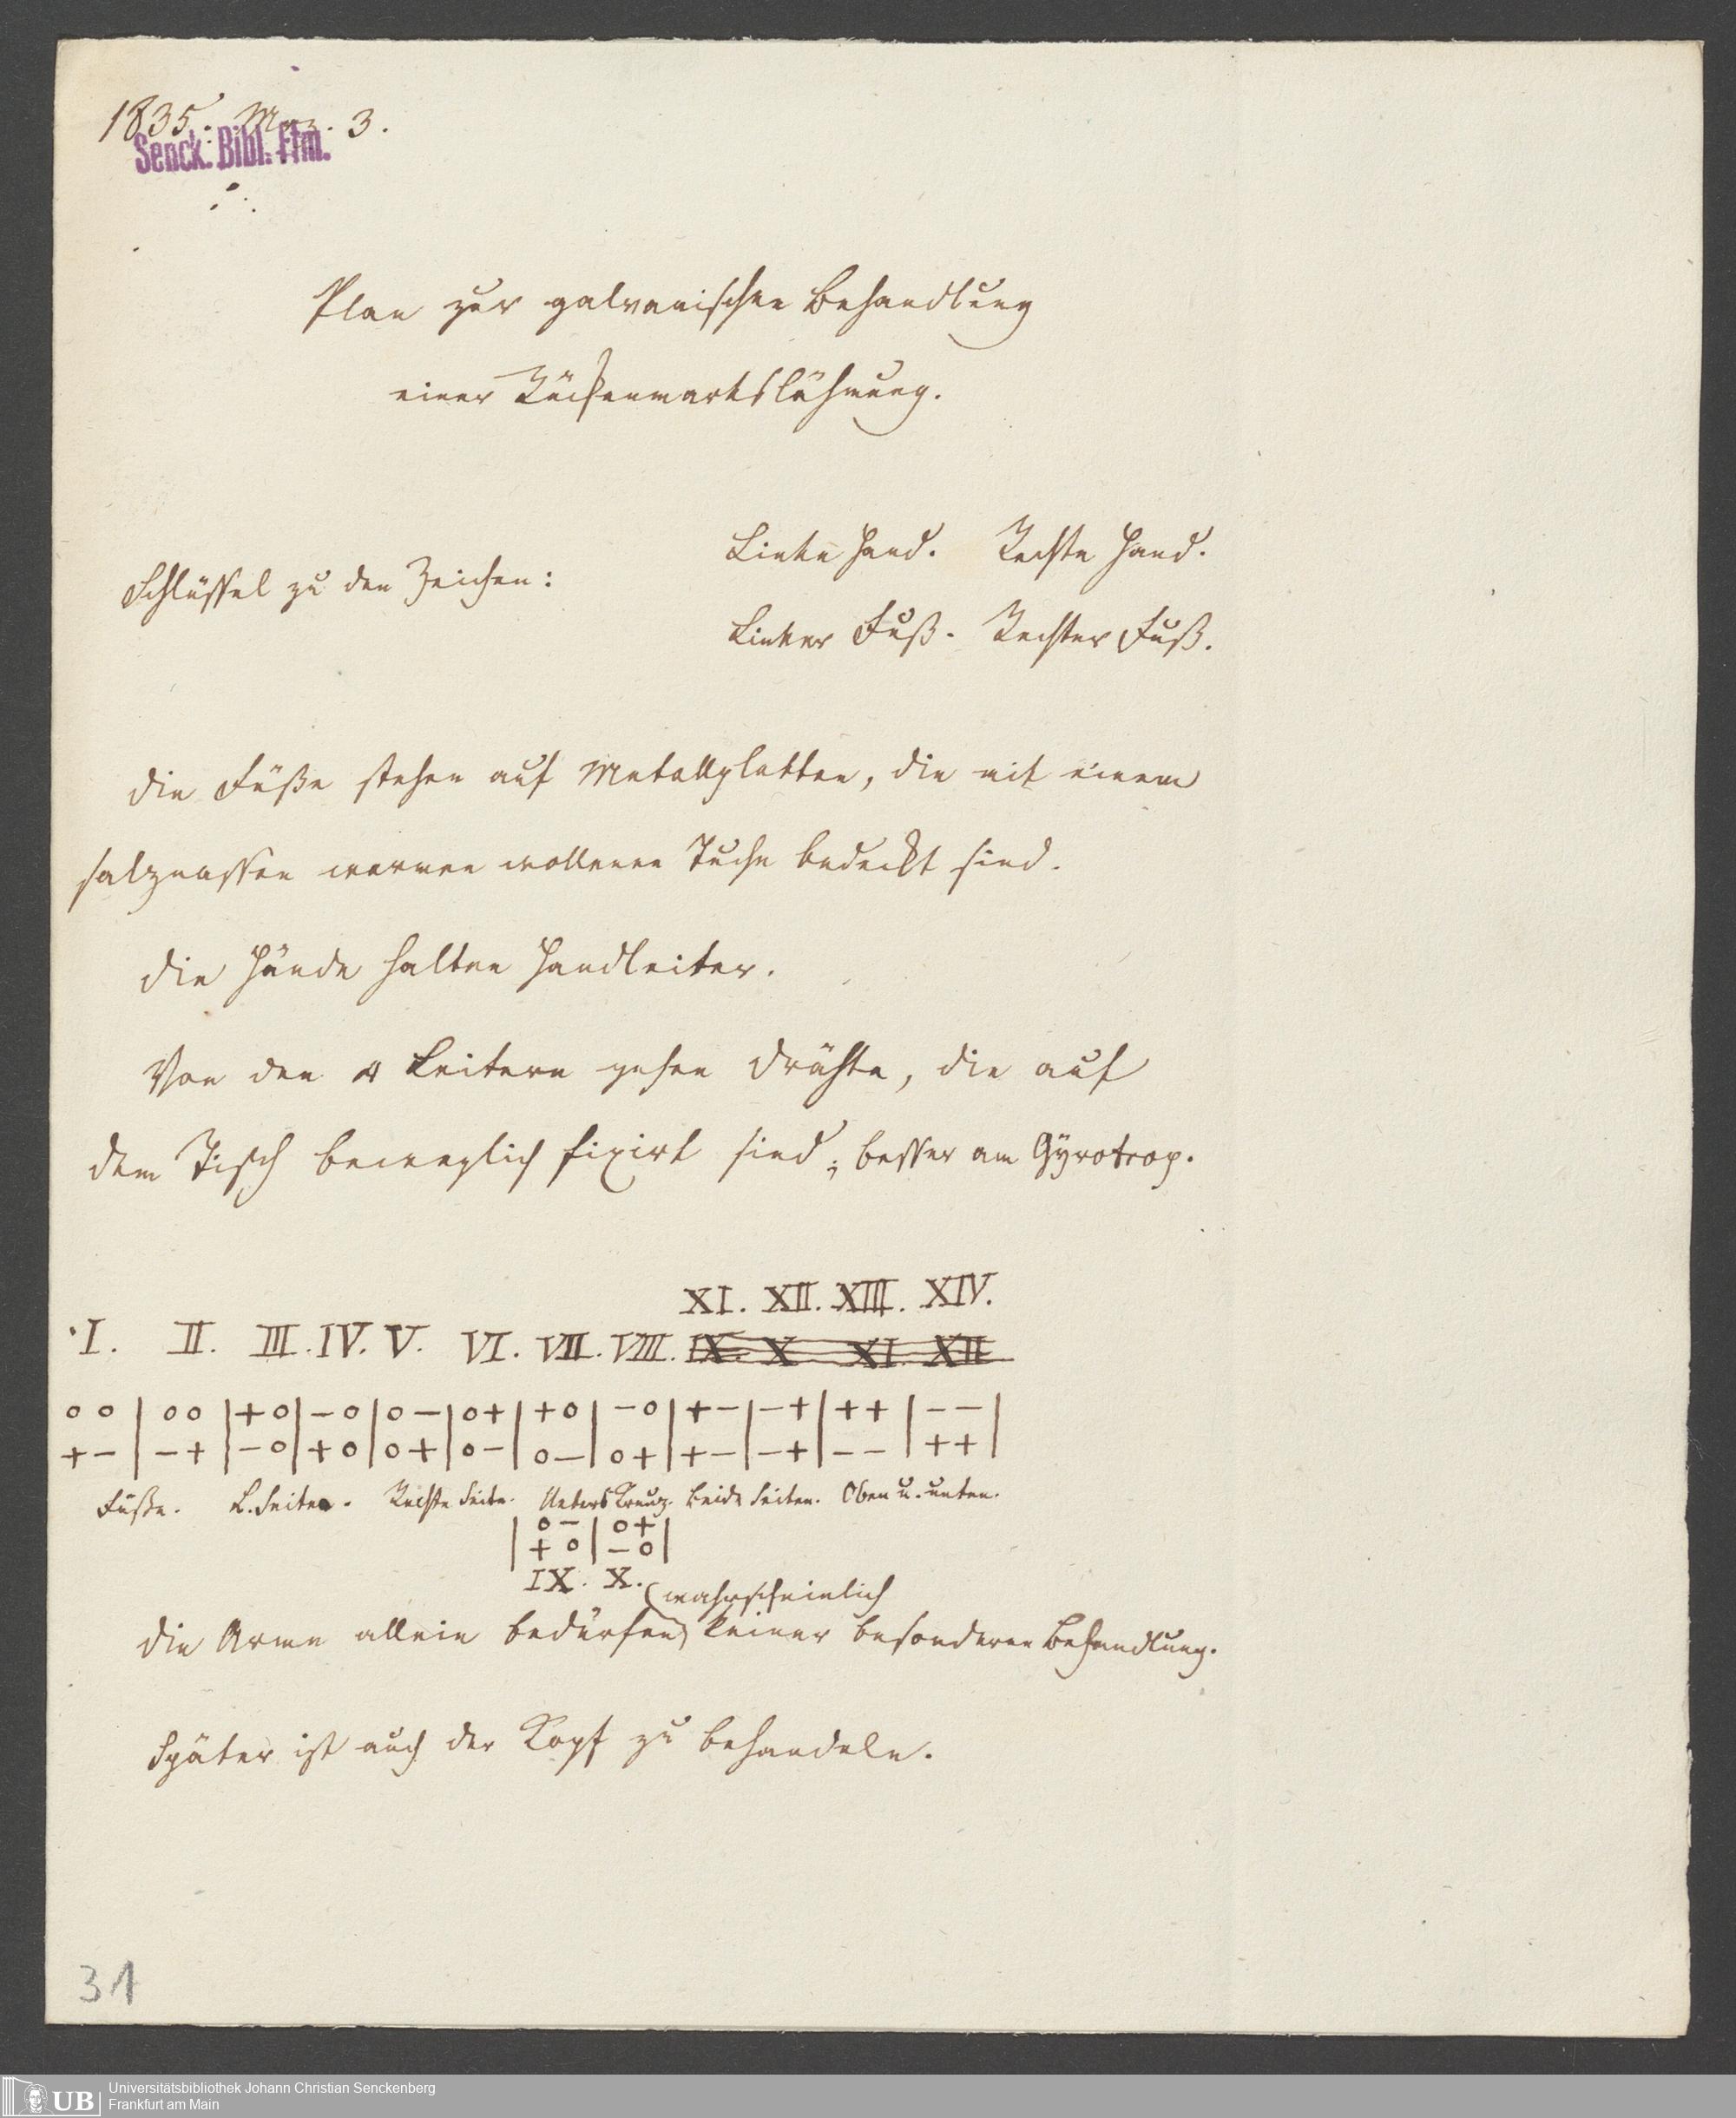 1835. Mrz. 3.
Senck. Bibl. Ffm.
Plan zur galvanischen Behandlung
einer Rückenmarkslähmung.
Linke Hand. Rechte Hand.
Schlüssel zu den Zeichen:
Linker Fuß. Rechter Fuß.
Die Füße stehen auf Metallplatten, die mit einem
salznassen warmen wollenen Tuche bedeckt sind.
Die Hände halten Handleiter.
Von den 4 Leitern gehen Drähte, die auf
dem Tisch beweglich fixirt sind; besser am Gÿrotrop.
XI. XII. XIII. XIV.
I. II. III. IV. V. VI. VII. VIII. IX. X XI. XII
o o | o o | + o | – o | o – | o + | + o | – o | + – | – + | + + | – – |
+ – | – + | – o | + o | o + | o – | o – | o + | + – | – + | – – | + + |
Füße. L. Seite. Rechte Seite. Uebers Kreuz. Beide Seiten. Oben u. unten.
| o – | o + |
| + o | – o |
IX. X.
wahrscheinlich
Die Arme allein bedürfen keiner besonderen Behandlung.
Später ist auch der Kopf zu behandeln.
31
UB
Universitätsbibliothek Johann Christian Senckenberg
Frankfurt am Main